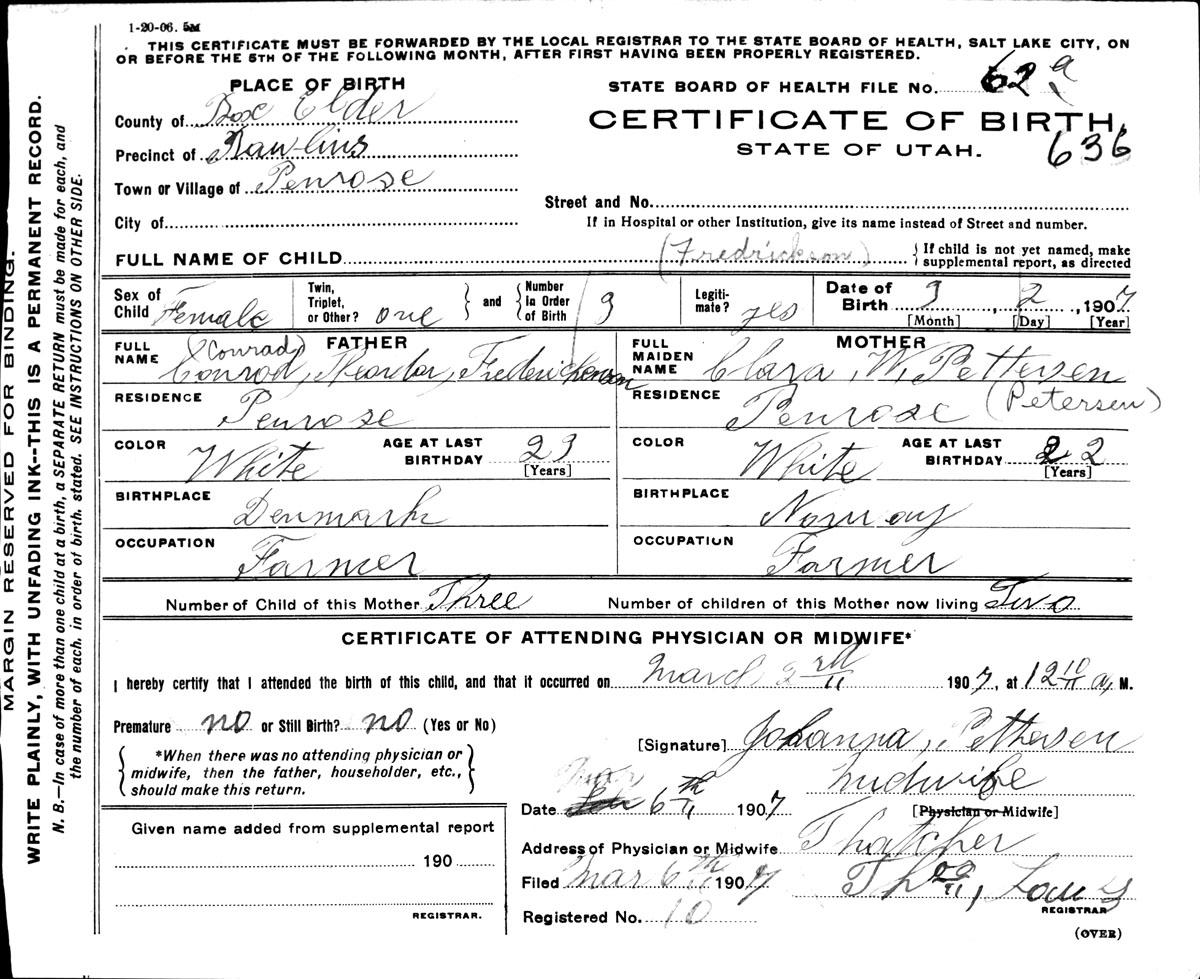 1-20-06. 5M
THIS CERTIFICATE MUST BE FORWARDED BY THE LOCAL REGISTRAR TO THE STATE BOARD OF HEALTH, SALT LAKE CITY, ON
OR BEFORE THE 5TH OF THE FOLLOWING MONTH, AFTER FIRST HAVING BEEN PROPERLY REGISTERED.
MARGIN RESERVED FOR BINDING.
WRITE PLAINLY, WITH UNFADING INK--THIS IS A PERMANENT RECORD.
N. B.—In case of more than one child at a birth, a SEPARATE RETURN must be made for each, and
the number of each. in order of birth. stated. SEE INSTRUCTIONS ON OTHER SIDE.
PLACE OF BIRTH
County of Box Elder
Precinct of Rawlins
Town or Village of Penrose
City of
STATE BOARD OF HEALTH FILE No. 62 a
CERTIFICATE OF BIRTH
STATE OF UTAH. 636
Street and No.
If in Hospital or other Institution, give its name instead of Street and number.
FULL NAME OF CHILD (Fredrickson) { If child is not yet named, make
supplemental report, as directed
Sex of Child Female Twin, Triplet, or Other? one } and { Number In Order of Birth 3 Legiti- mate? yes Date of Birth 3, 2, 1907
[Month] [Day] [Year]
FATHER
FULL NAME (Conrad) Conrod, Theordor, Frederickenson
RESIDENCE Penrose
COLOR White AGE AT LAST BIRTHDAY 23 [Years]
BIRTHPLACE Denmark
OCCUPATION Farmer
MOTHER
FULL MAIDEN NAME Clara, W, Pettersen
RESIDENCE Penrose (Petersen)
COLOR White AGE AT LAST BIRTHDAY 22 [Years]
BIRTHPLACE Norway
OCCUPATION Farmer
Number of Child of this Mother Three Number of children of this Mother now living Two
CERTIFICATE OF ATTENDING PHYSICIAN OR MIDWIFE*
I hereby certify that I attended the birth of this child, and that it occurred on March 2rd 1907, at 12 10 a, M.
Premature no or Still Birth? no (Yes or No)
*When there was no attending physician or
midwife, then the father, householder, etc.,
should make this return.
[Signature] Johanna, Pethersen
midwife
[Physician or Midwife]
Date Mar 6th 1907
Address of Physician or Midwife Thatcher
Filed Mar 6th 1907
REGISTRAR
Registered No. 10
(OVER)
Given name added from supplemental report
190
REGISTRAR.